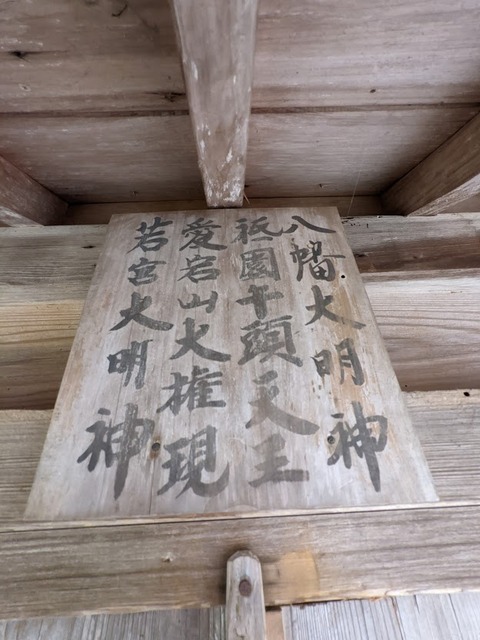 八幡大明神
祇園牛頭天王
愛宕山大権現
若宮大明神